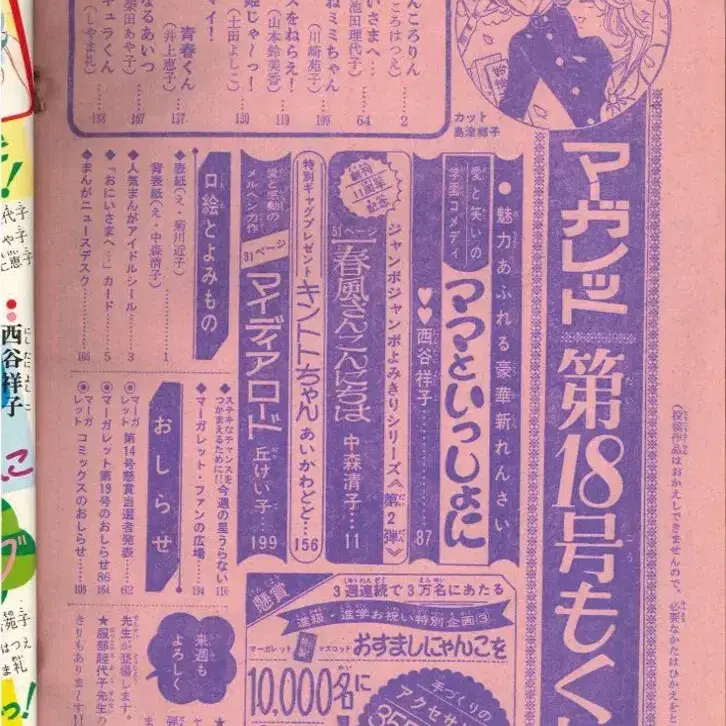 マーガレット 第18号もく
カット
島津郷子
んころりん
ころはつえ)……2
いさまへ…
池田理代子)……64
ねミミちゃん
(川崎苑子)……109
スをねらえ!
(山本鈴美香)……119
姫じゃ〜っ!
(土田よしこ)……130
青春くん
(井上恵子)……137
マイ!
なるあいつ
柴田あや子)……167
キュラくん
(しやま礼)……183
●魅力あふれる豪華新れんさい
愛と笑いの
学園コメディ
ママといっしょに
♥♥西谷祥子……87
創刊
11周年
記念
ジャンボジャンボよみきりシリーズ《第2弾》
51ページ
春風さんこんにちは
中森清子…11
特別ギャグプレゼント
キントトちゃん
あいかわどと…156
愛と感動の
メルヘン力作
31ページ
マイディアロード
丘けい子…199
口絵とよみもの
◆表紙(え・菊川近子)
背表紙(え・中森清子)……1
◆人気まんがアイドルシール……3
◆「おにいさまへ…」カード……5
◆まんがニュースデスク……106
おしらせ
◆ステキなチャンスを
つかまえるために!!今週の星うらない 116
◆マーガレット・ファンの広場……194
◉マーガレット 第14号懸賞当選者発表……62
◉マーガレット第19号のおしらせ 86 164
◉マーガレット コミックスのおしらせ……108
懸賞
3週連続で3万名にあたる
進級・進学お祝い特別企画③
マーガレット
特製
マスコット
おすましにゃんこを
10,000名に
手づくりの
アクセサリ
来週も
よろしく
先生が登場します。
★服部起代子先生の
きりもありま〜す!!
(投稿作品はおかえしできませんので、必要なかたはひかえを
西谷祥子
にしたによしこ